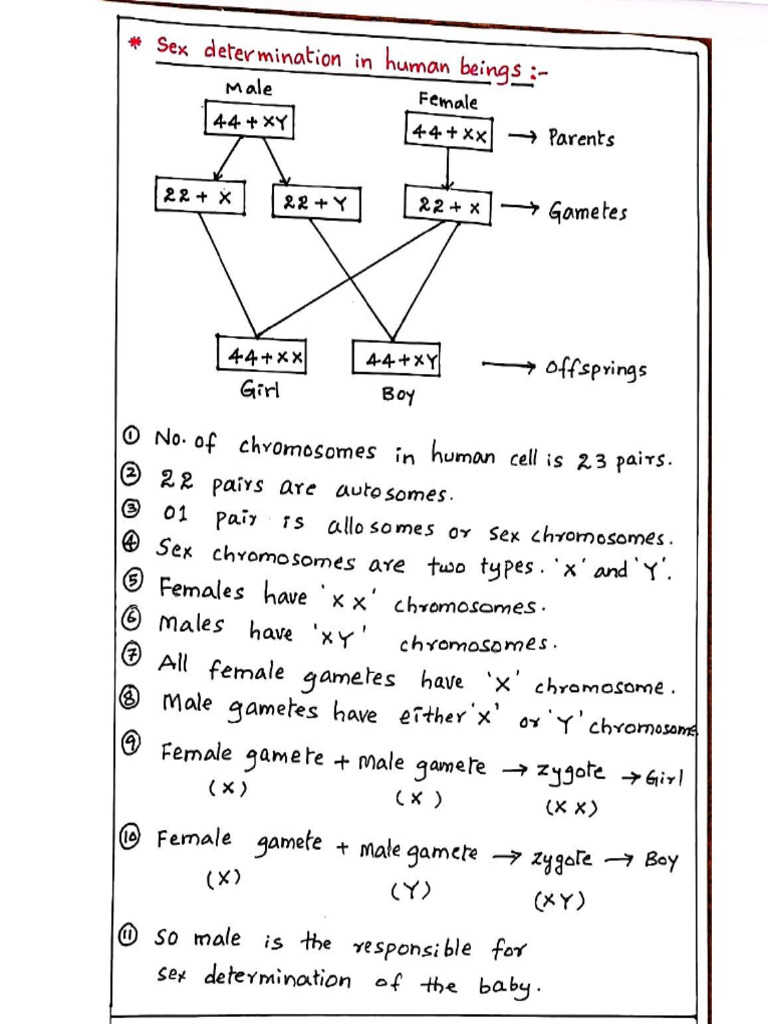 * Sex determination in human beings :-
Male Female
44 + XY 44 + XX → Parents
22 + X 22 + Y 22 + X → Gametes
44 + XX 44 + XY → Offsprings
Girl Boy
① No. of chromosomes in human cell is 23 pairs.
② 22 pairs are autosomes.
③ 01 pair is allosomes or sex chromosomes.
④ Sex chromosomes are two types. 'X' and 'Y'.
⑤ Females have 'XX' chromosomes.
⑥ Males have 'XY' chromosomes.
⑦ All female gametes have 'X' chromosome.
⑧ Male gametes have either 'X' or 'Y' chromosome
⑨ Female gamete + Male gamete → zygote → Girl
(X) (X) (X X)
⑩ Female gamete + Male gamete → zygote → Boy
(X) (Y) (XY)
⑪ So male is the responsible for
sex determination of the baby.